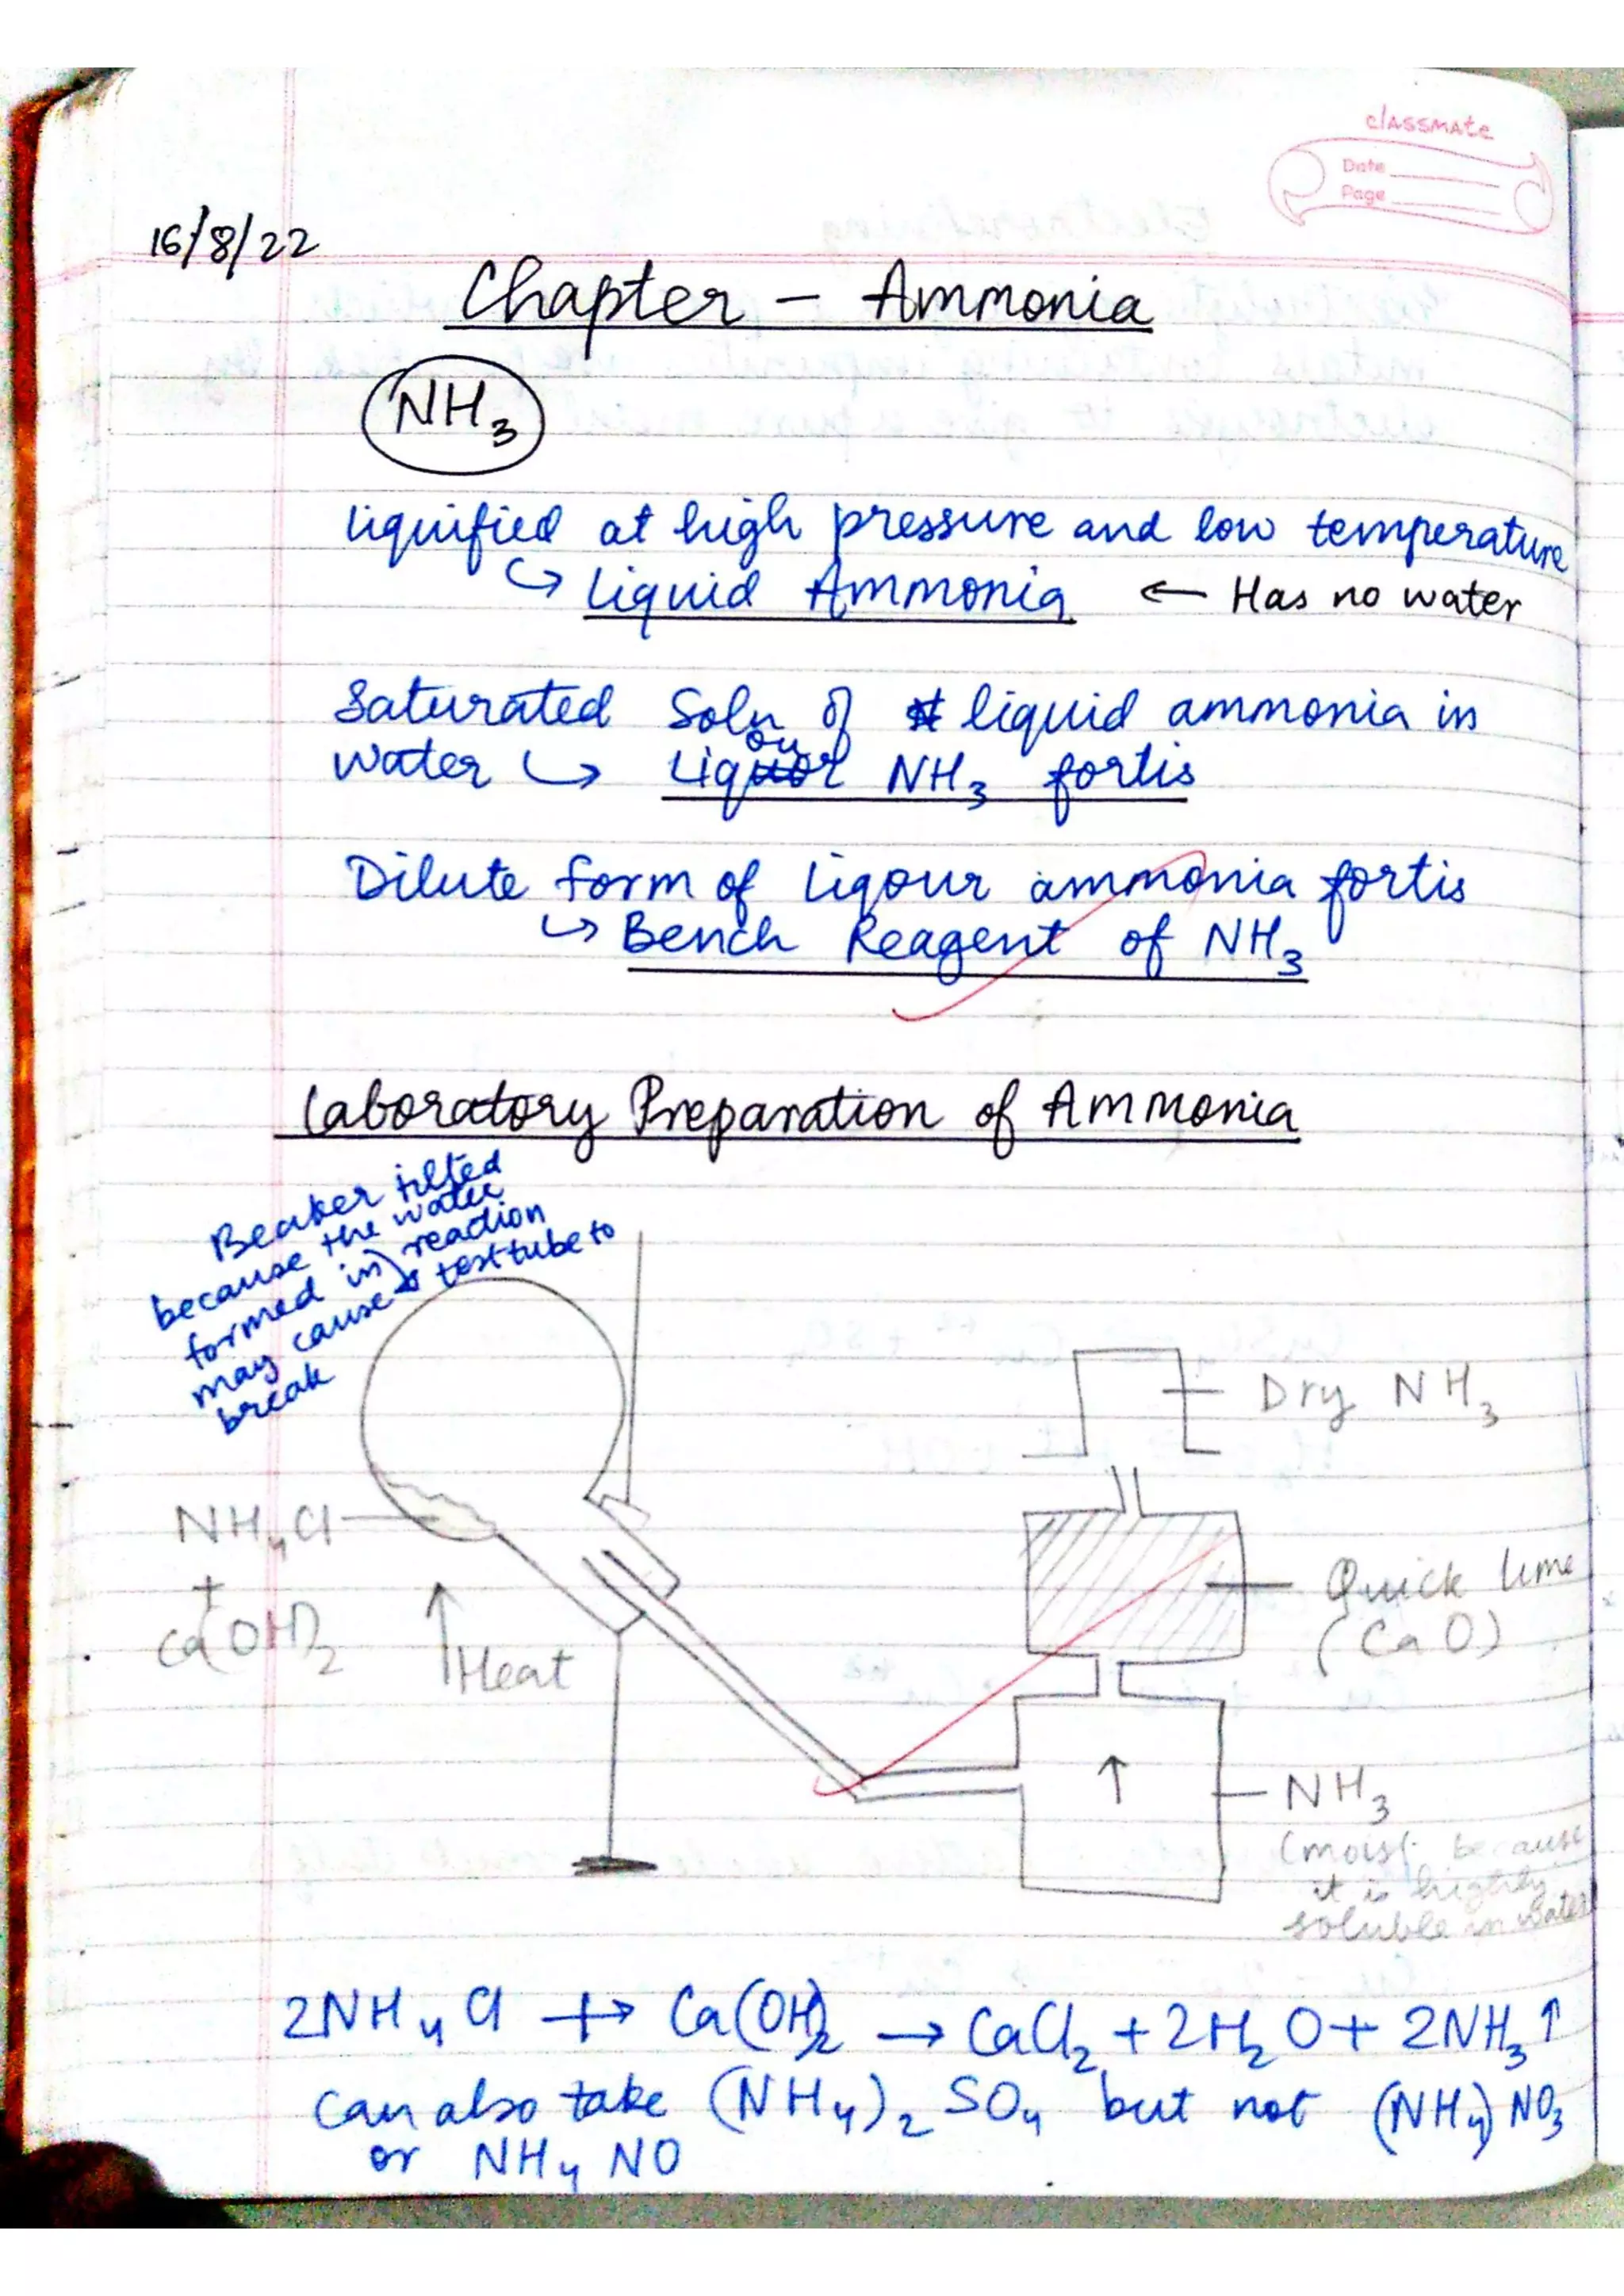 classmate
Date
Page
16/8/22
Chapter - Ammonia
NH3
Liquified at high pressure and low temperature
↪ Liquid Ammonia ← Has no water
Saturated Soln of liquid ammonia in
water ↪ Liqour NH3 fortis
Dilute form of Liqour ammonia fortis
↪ Bench Reagent of NH3
Laboratory Preparation of Ammonia
Beaker tilted
because the water
formed in reaction
may cause test tube to
break
Dry NH3
NH4Cl
+
Ca(OH)2
Heat
Quick lime
(CaO)
↑
NH3
(moist because
it is highly
soluble in water
2NH4Cl + → Ca(OH)2 → CaCl2 + 2H2O + 2NH3↑
Can also take (NH4)2 SO4 but not (NH4)NO3
or NH4 NO